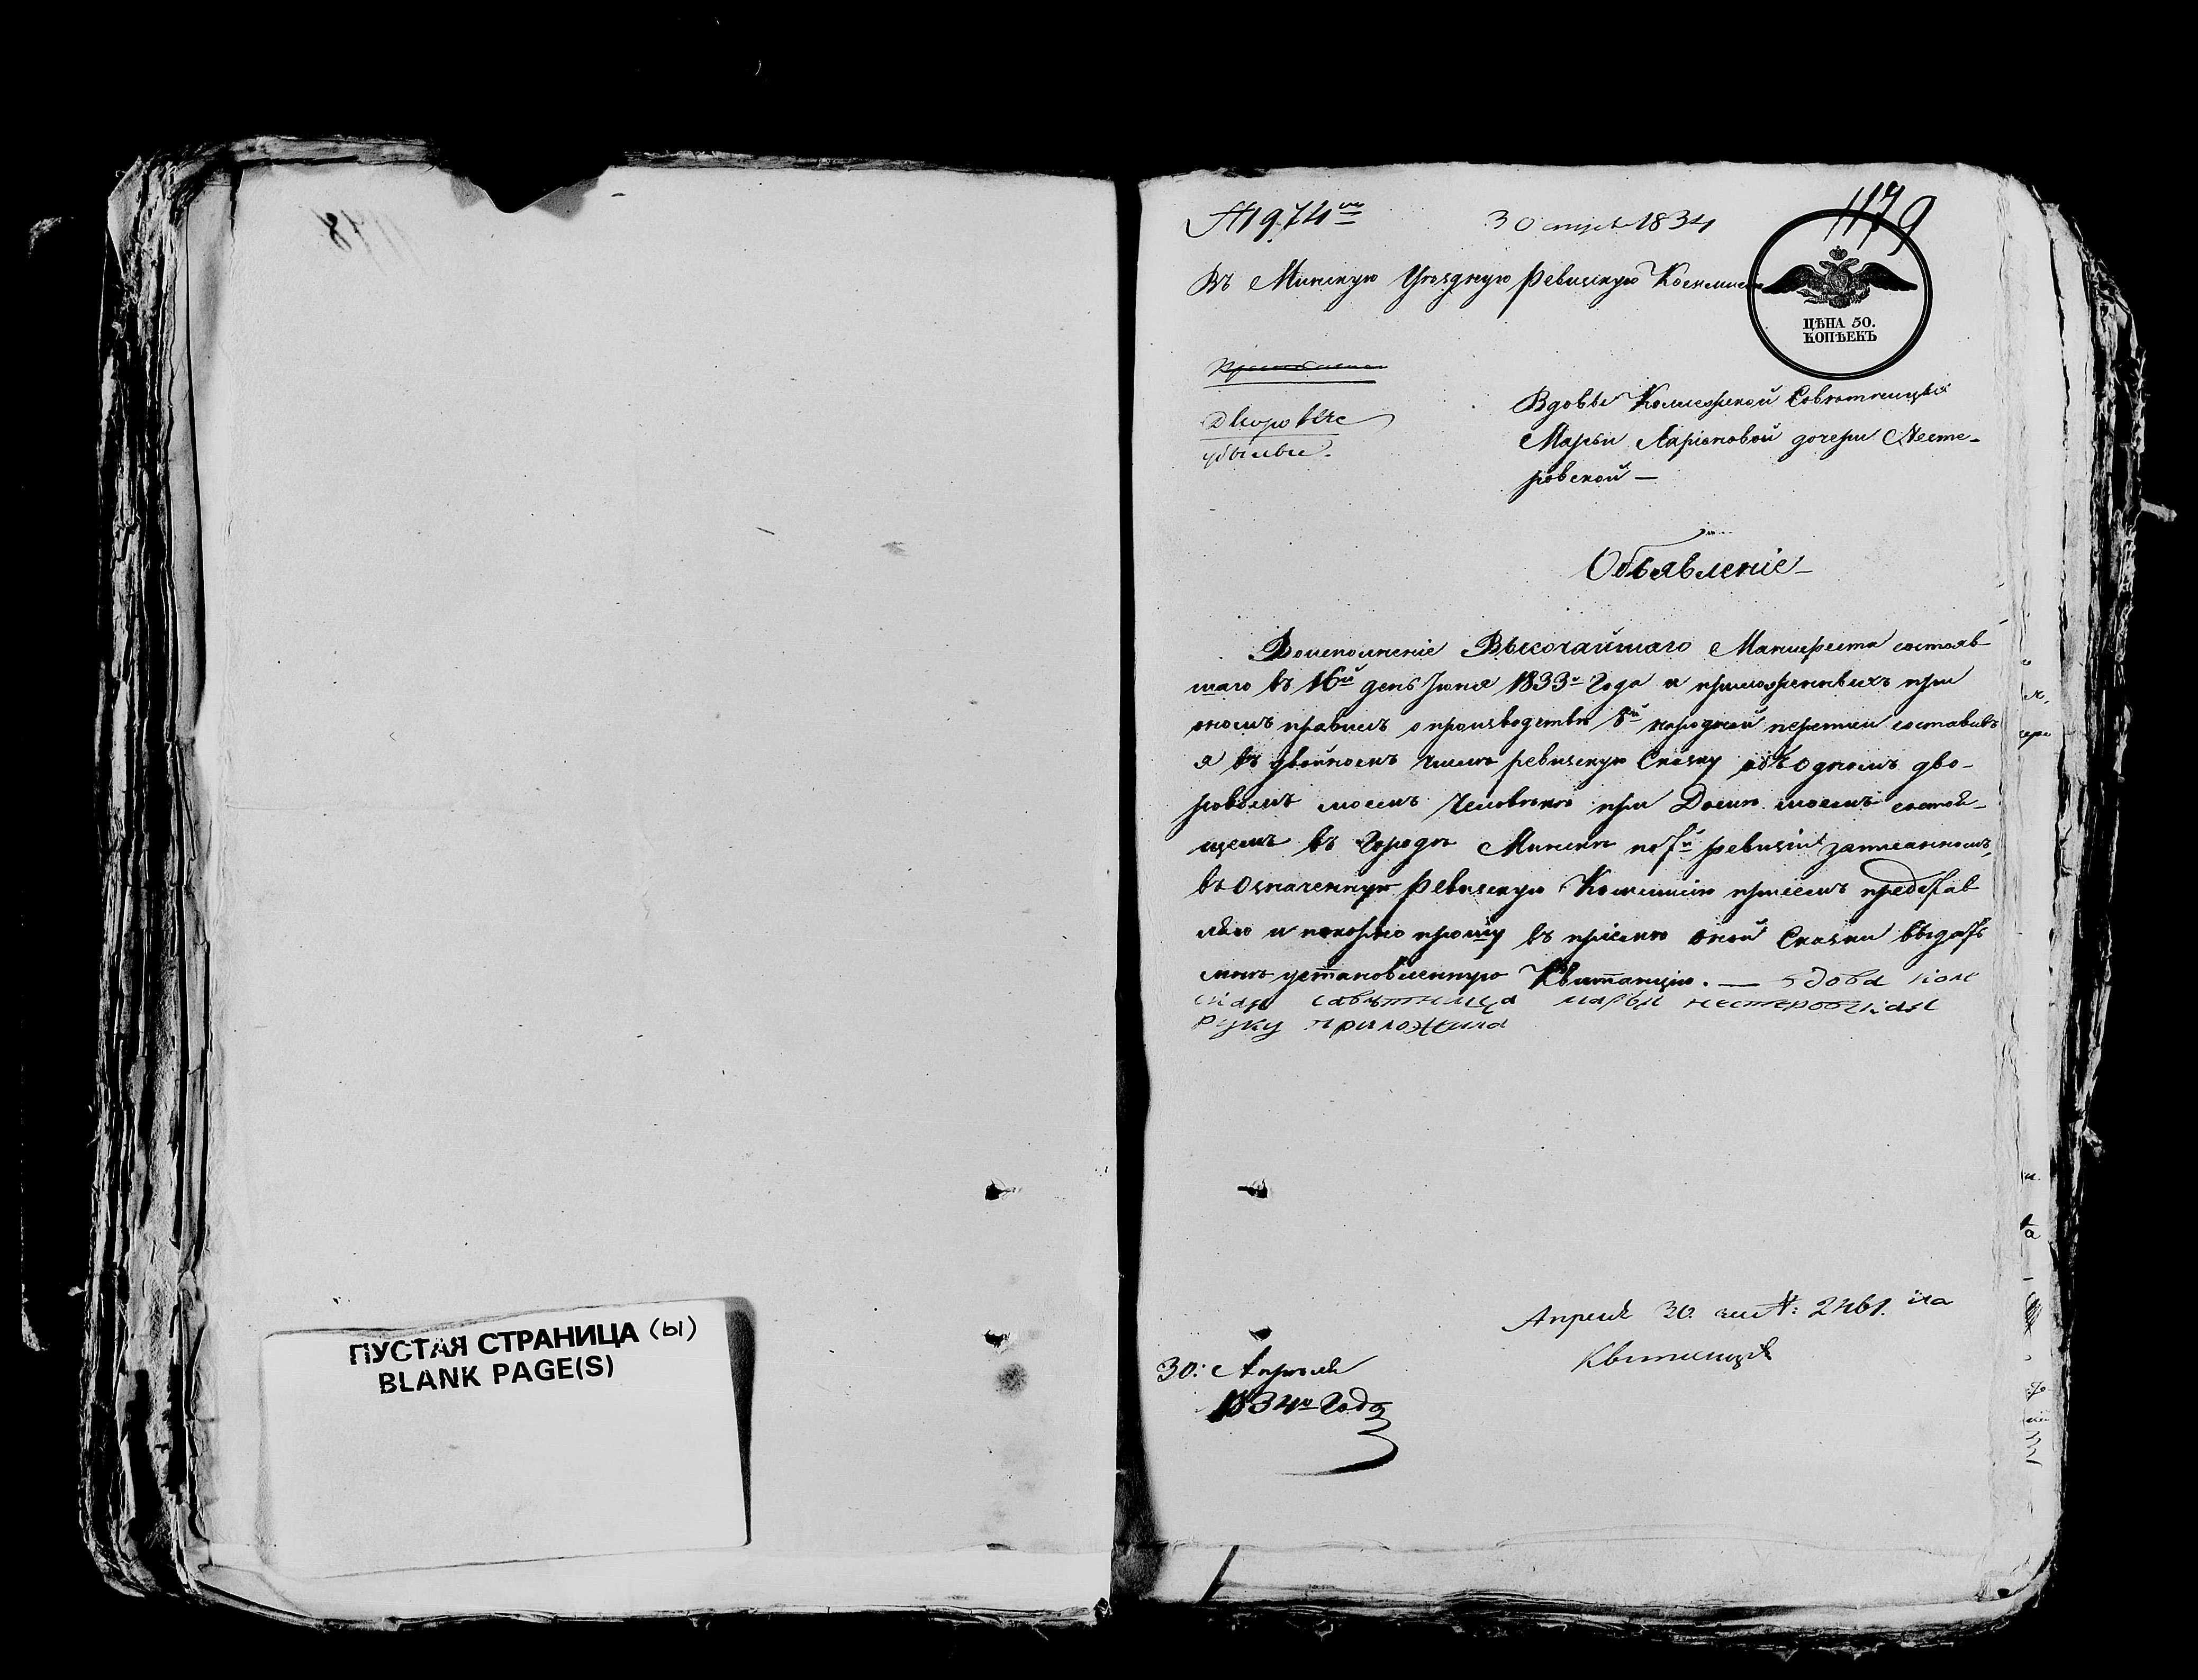 ПУСТАЯ СТРАНИЦА (ы)
BLANK PAGE(S)
1179
№ 1974
30 апрѣля 1834
Въ Минскую Уѣздную Ревизскую Коммисію
ЦѢНА 50.
КОПѢЕКЪ
Вдовы Коллежской Совѣтницы
Марьи Ларіоновой дочери Несте-
ровской —
Дворовые
убылые.
Объявленіе
Воисполненіе Высочайшаго Манифеста состояв
шаго въ 16й день Іюня 1833го Года и приложенныхъ при
ономъ правилъ о производствѣ 8й народной переписи составивъ
я въ двойномъ числѣ ревизскую Сказку объ Одномъ дво-
ровомъ моемъ Человѣкѣ при Домѣ моемъ состоя-
щемъ въ Городѣ Минскѣ по 7й ревизіи записанномъ,
въ Означенную Ревизскую Коммисію присемъ представ
ляю и покорно прошу въ пріемѣ оной Сказки выдать
мнѣ установленную Квитанцію. — вдова кол
ская савѣтница марья нестеровская
руку приложила
Апреля 30. № 2461. на
Квитанція
30: Апрѣля
1834го Года